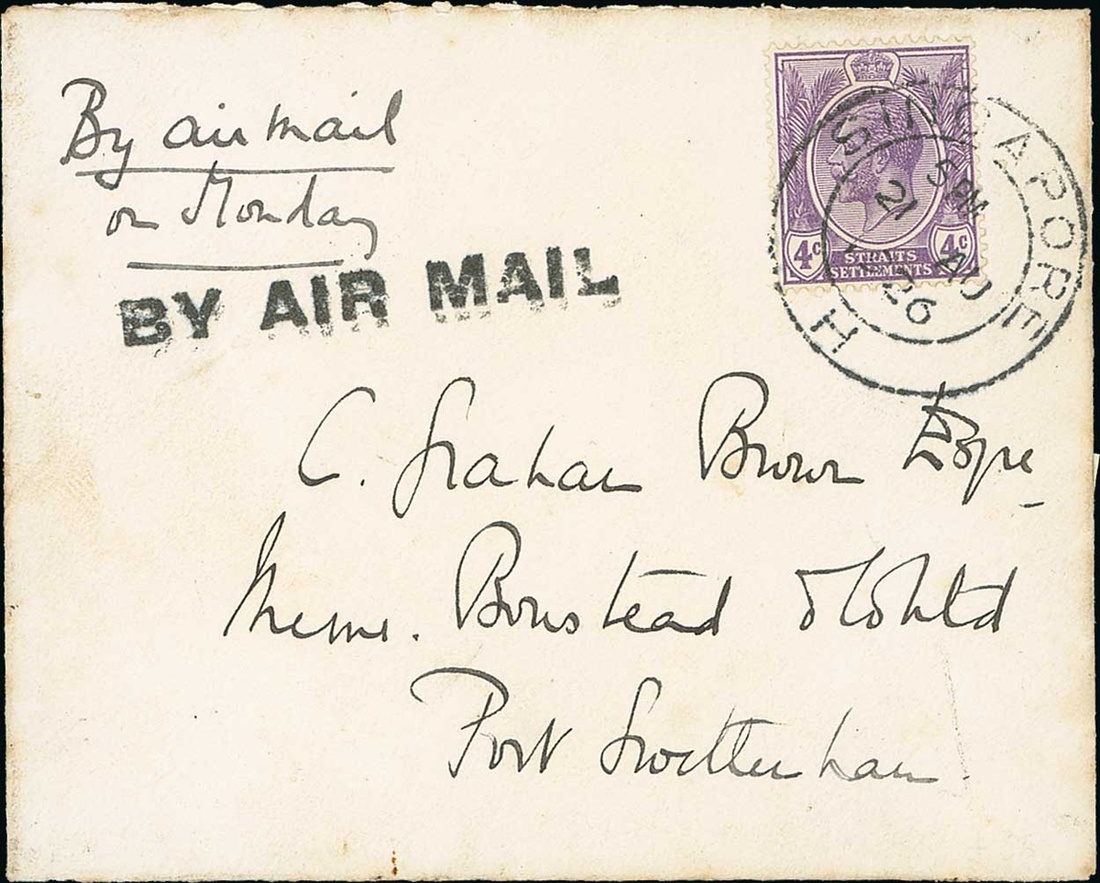 By air mail
on Monday
BY AIR MAIL
SINGAPORE
5 PM
21
AU
26
H
4c
4c
STRAITS
SETTLEMENTS
C. Graham Brown Esqre
Messrs. Boustead & Co Ltd
Port Swettenham